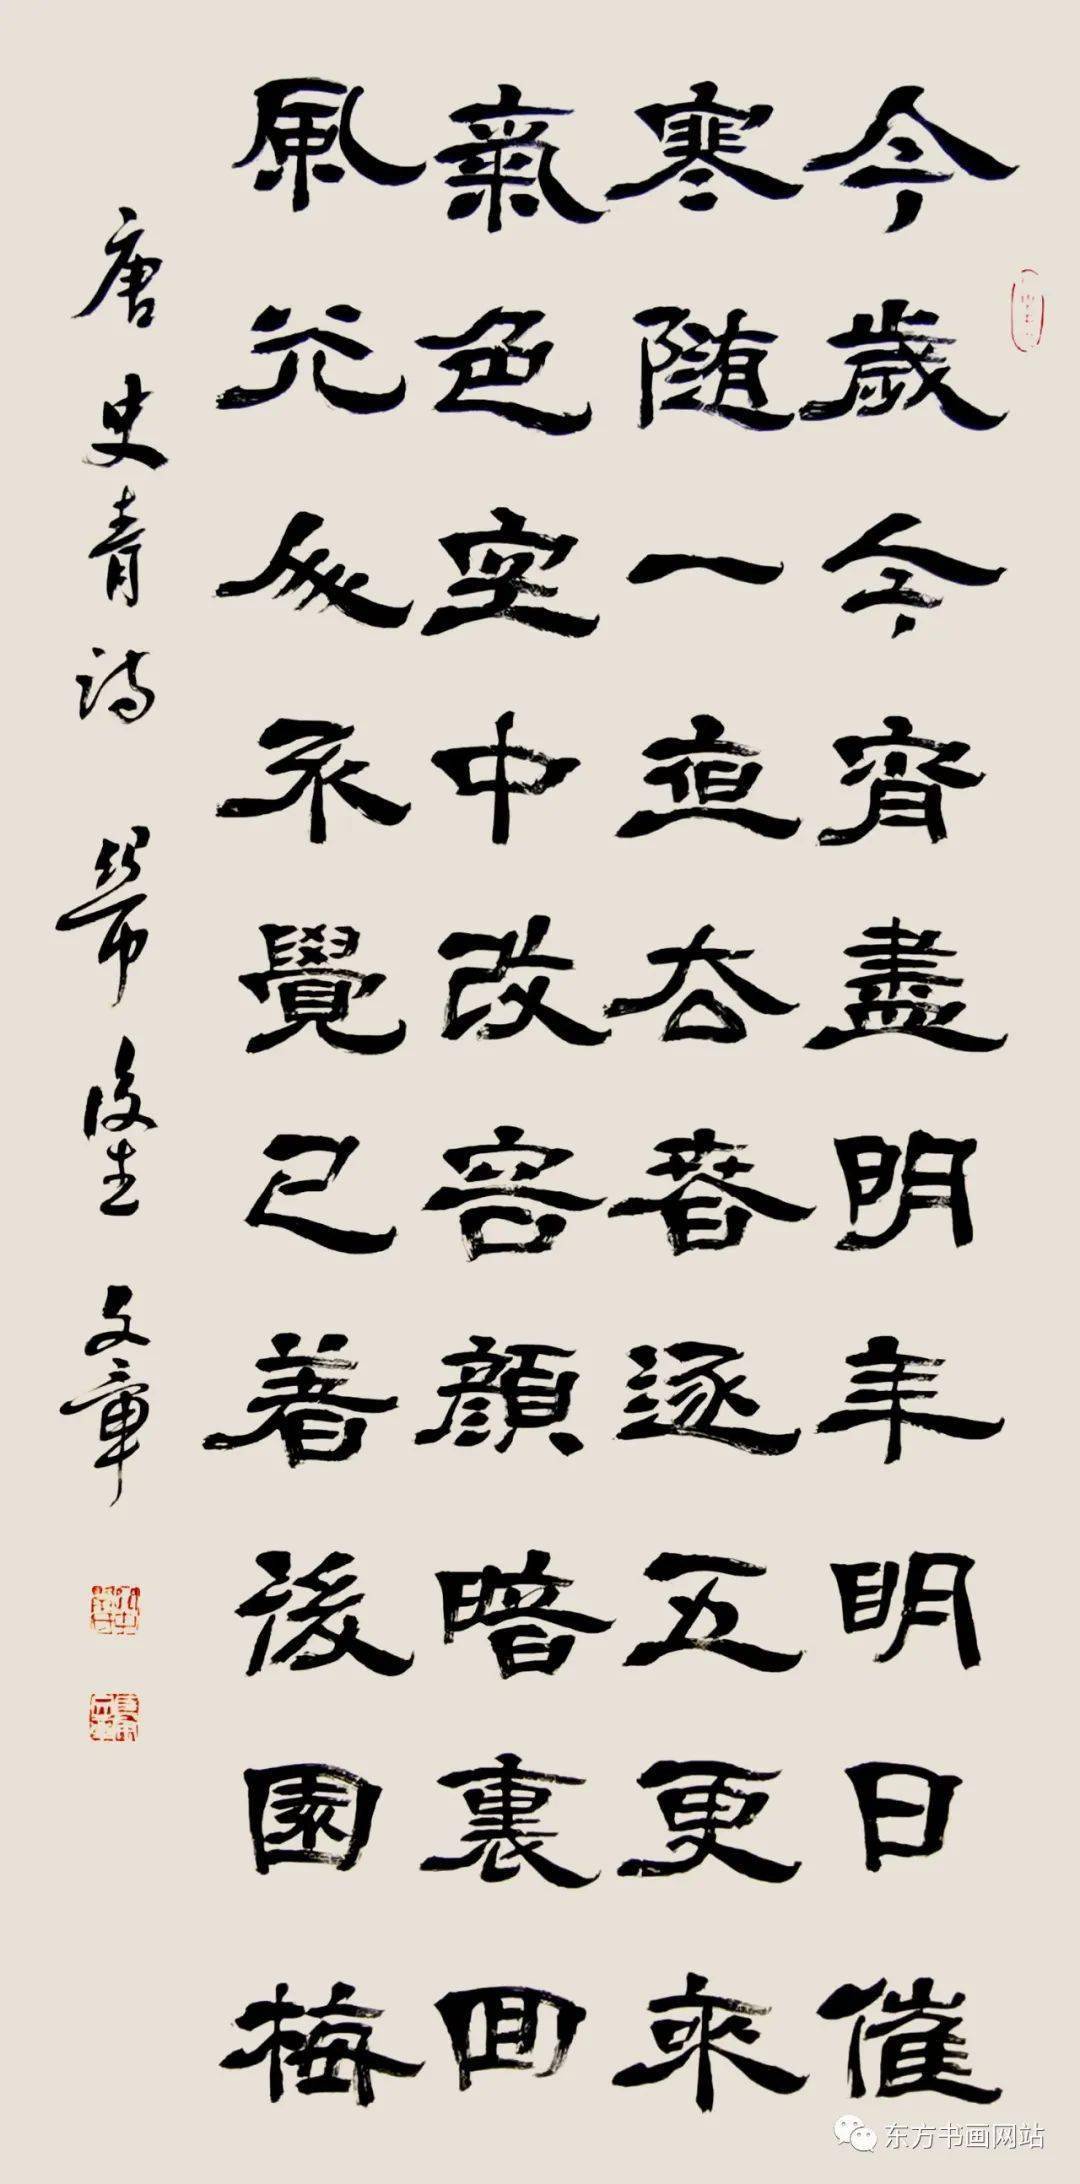 今歲今宵盡明年明日催
寒随一夜去春逐五更來
氣色空中改容顔暗裏回
風光人不覺已著後園梅
唐史青诗 文章
东方书画网站